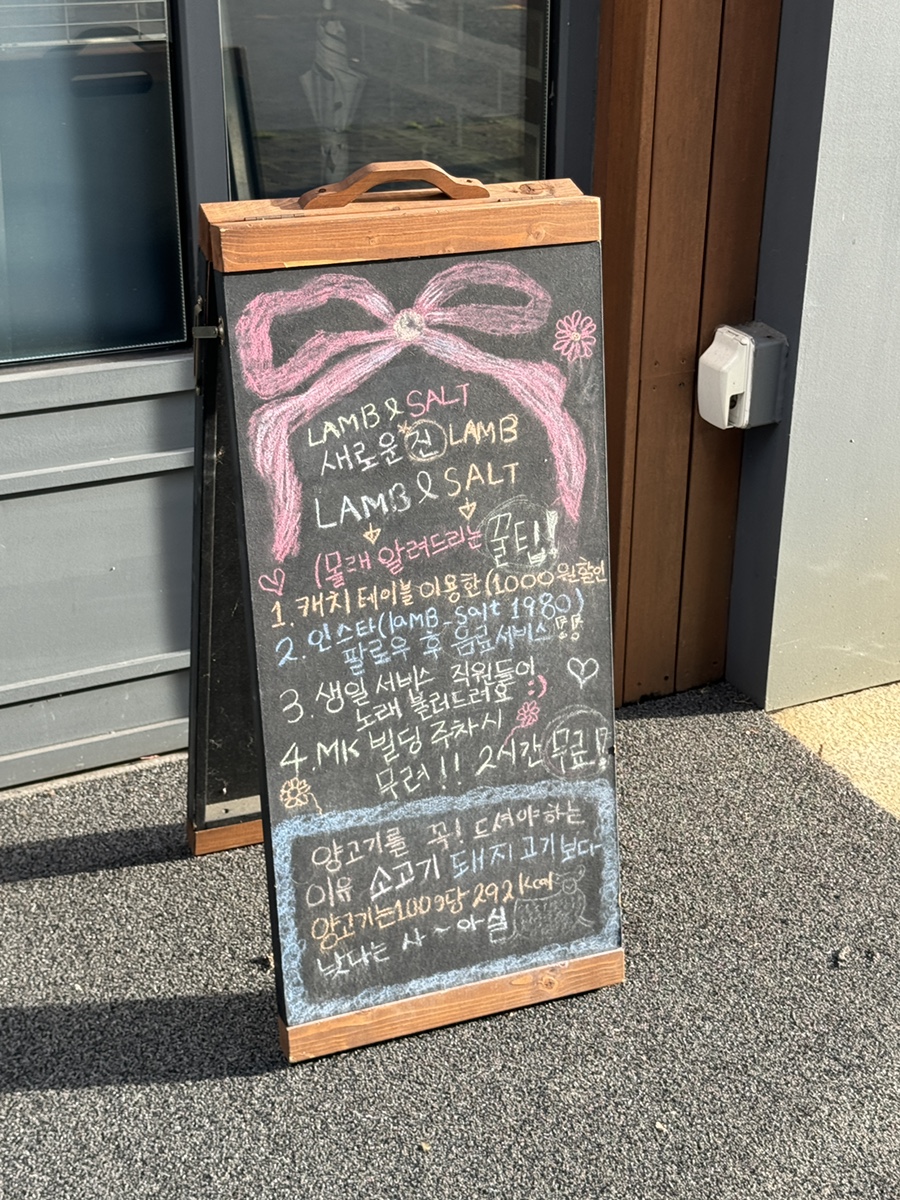 LAMB & SALT
새로운 진 LAMB
LAMB & SALT
(몰래 알려드리는 꿀팁!
1. 캐치 테이블 이용한 (1000원할인
2. 인스타(lamB_Salt 1980)
팔로우 후 음료서비스
3. 생일 서비스 직원들이
노래 불러드려요 :)
4. MK 빌딩 주차시
무려!! 2시간 무료!
양고기를 꼭! 드셔야하는
이유 소고기 돼지고기보다
양고기는 100g당 292kcal
낮다는 사~아실